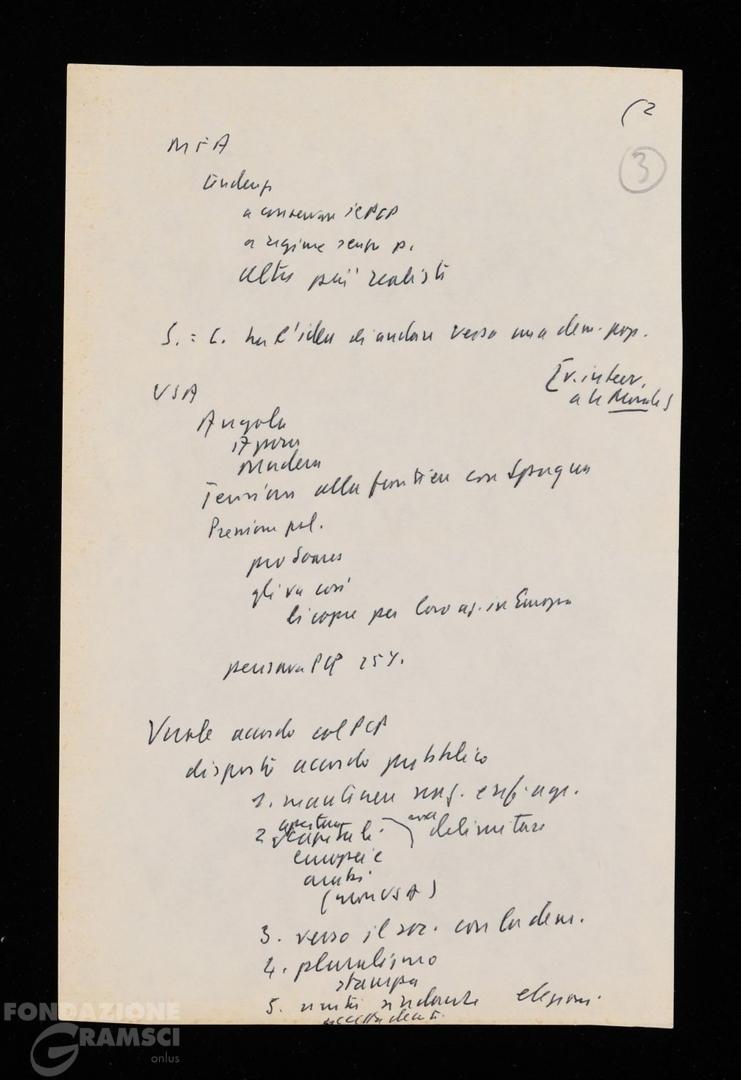 (2
3
MFA
tendenze
a conservare il PCP
a regime senza p.
altri più realisti
S. = C. ha l'idea di andare verso una dem. pop.
[v. interv.
a Le Monde]
USA
Angola
Azzorre
Madera
Tensioni alla frontiera con Spagna
Pressioni pol.
pro Soares
gli va così
li copre per loro az. in Europa
pensava PCP 25%.
Vuole accordo col PCP
disposti accordo pubblico
1. mantenere naz. e rif. agr.
2. apertura capitali
europei e
arabi
(non USA)
delimitare
3. verso il soc. con la dem.
4. pluralismo
stampa
5. unità sindacale elezioni.
FONDAZIONE
GRAMSCI
onlus